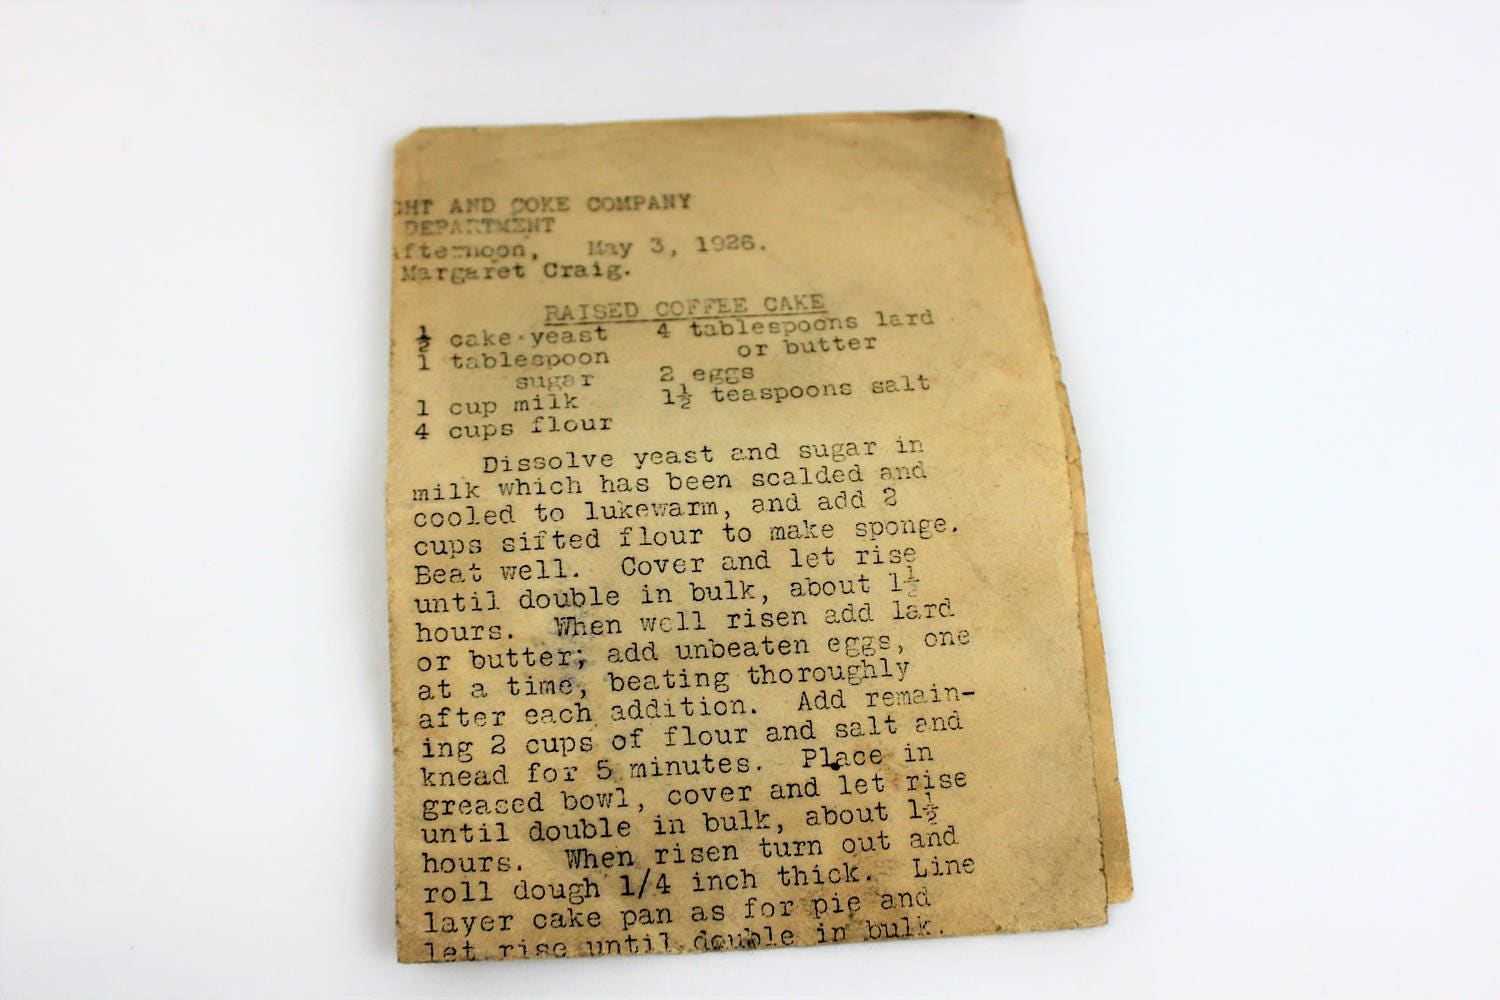 GHT AND COKE COMPANY
DEPARTMENT
Afternoon, May 3, 1926.
Margaret Craig.
RAISED COFFEE CAKE
½ cake yeast 4 tablespoons lard
1 tablespoon or butter
sugar 2 eggs
1 cup milk 1½ teaspoons salt
4 cups flour
Dissolve yeast and sugar in
milk which has been scalded and
cooled to lukewarm, and add 2
cups sifted flour to make sponge.
Beat well. Cover and let rise
until double in bulk, about 1½
hours. When well risen add lard
or butter; add unbeaten eggs, one
at a time, beating thoroughly
after each addition. Add remain-
ing 2 cups of flour and salt and
knead for 5 minutes. Place in
greased bowl, cover and let rise
until double in bulk, about 1½
hours. When risen turn out and
roll dough 1/4 inch thick. Line
layer cake pan as for pie and
let rise until double in bulk.